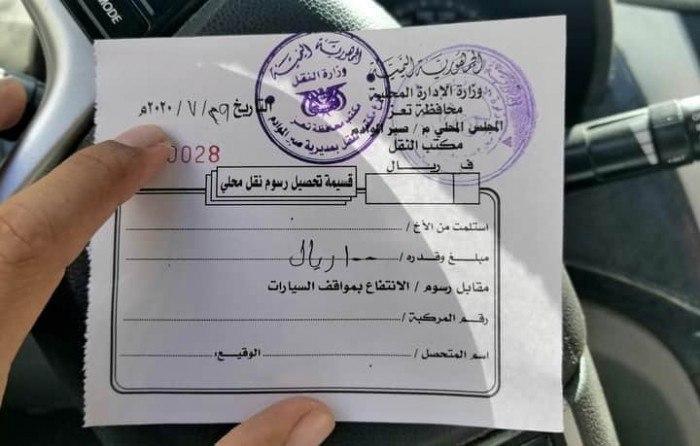 MODE
الجمهورية اليمنية
وزارة الإدارة المحلية
محافظة تعز
المجلس المحلي م / صبر الموادم
مكتب النقل
ف ريال
الجمهورية اليمنية
وزارة النقل
مكتب محافظة تعز
النقل بمديرية صبر الموادم
التاريخ ٢٩ / ٧ / ٢٠٢٠م
0028
قسيمة تحصيل رسوم نقل محلي
استلمت من الأخ /
مبلغ وقدره / ١٠٠ ريال
مقابل رسوم / الانتفاع بمواقف السيارات
رقم المركبة /
اسم المتحصل / الوقيع: